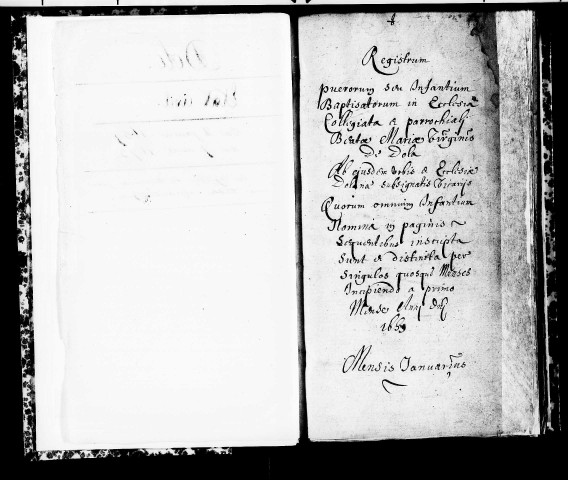 Registrum
puerorum seu Infantium
Baptisatorum in Ecclesia
Collegiata et parrochiali
Beatæ Mariæ Virginis
De Dola
Ab ejusdem urbis et Ecclesiæ
Dolanæ subsignatis Vicarijs
Quorum omnium Infantium
Nomina in paginis
Sequentibus inscripta
sunt et distincta per
singulos quosque Menses
Incipiendo a primo
Mense Anni Dni
1659
Mensis Januarius